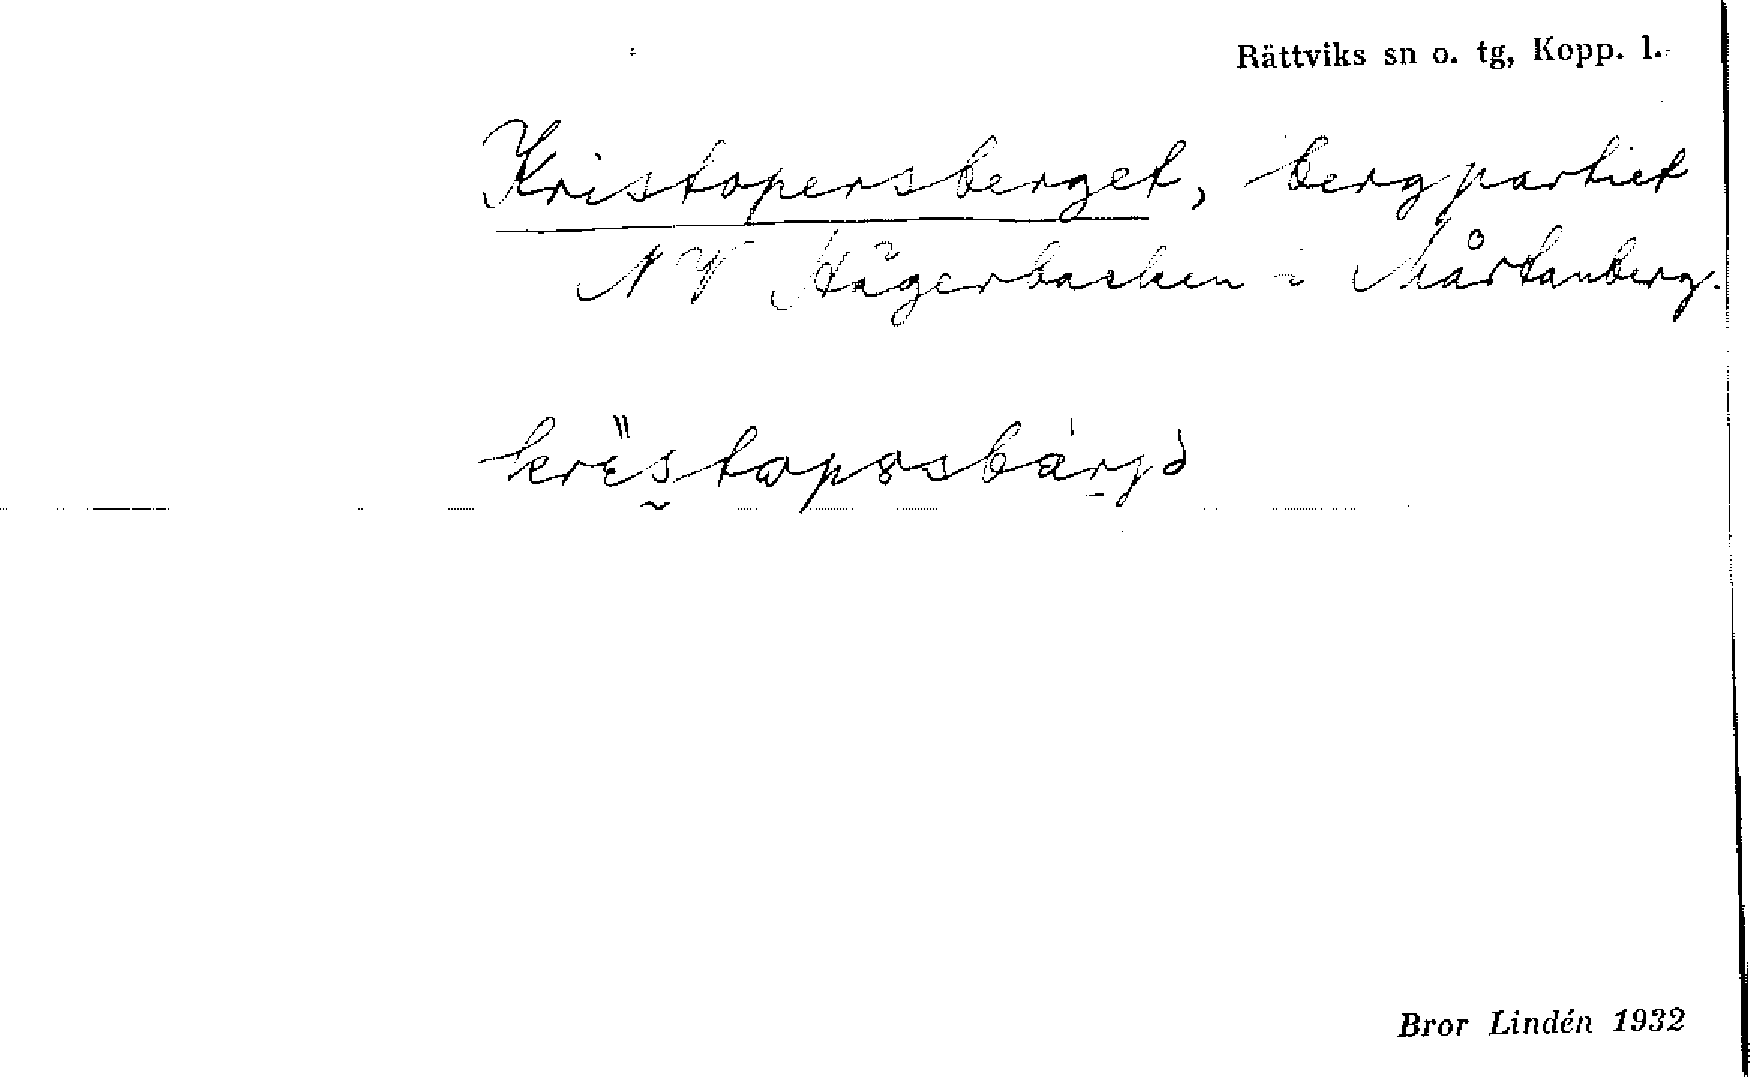 Rättviks sn o. tg, Kopp. l.
Kristopersberget, bergpartiet
NV Hågerbacken i Mårtanberg.
Bror Lindén 1932